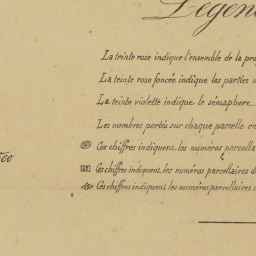 Légen
La teinte rose indique l'ensemble de la pro
La teinte rose foncée indique les parties
La teinte violette indique le sémaphore
Les nombres portés sur chaque parcelle
Ces chiffres indiquent, les numéros parcella
Ces chiffres indiquent, les numéros parcellaires d
Ces chiffres indiquent, les numéros parcellaires